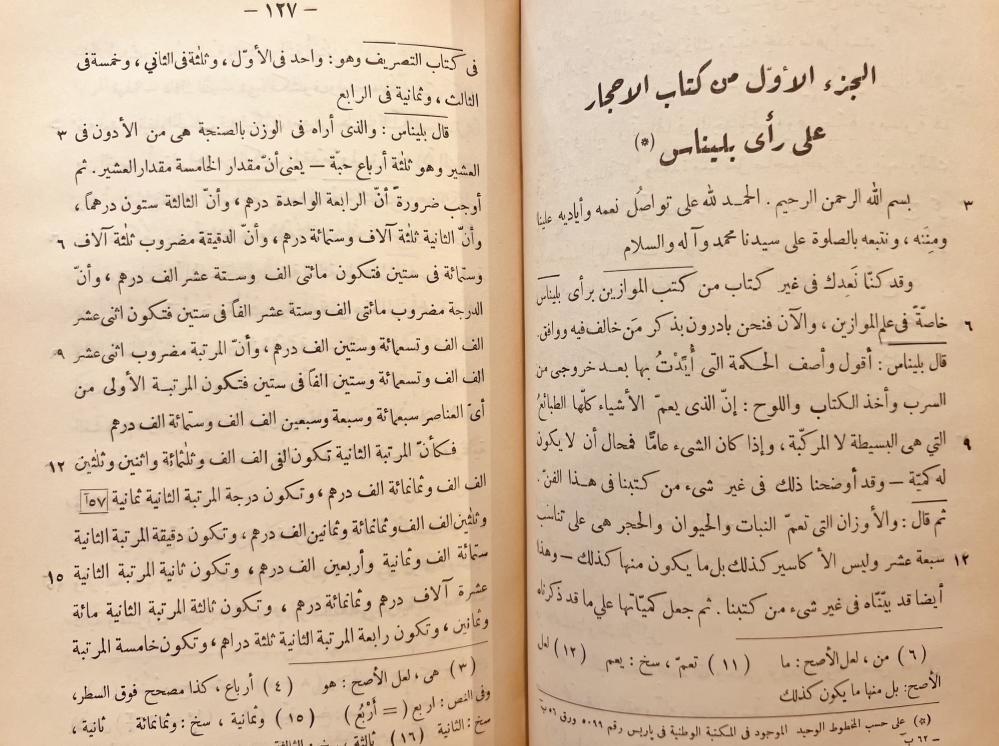 الجزء الأوّل من كتاب الاحجار
على رأى بليناس (*)
بسم الله الرحمن الرحيم . الحمد لله على تواصُل نعمه وأياديه علينا ٣
ومِنَنه ، ونتبعه بالصلوة على سيدنا محمد وآ له والسلام
وقد كنّا نَعِدك فى غير كتاب من كتب الموازين برأى بليناس
خاصّةً فى علم الموازين ، والآن فنحن بادرون بذكر مَن خالف فيه ووافق. ٦
قال بليناس : أقول وأصف الحكمة التى أُيّدْتُ بها بعد خروجى من
السرب وأخذ الكتاب واللوح : إنّ الذى يعمّ الأشياء كلّها الطبائعُ
التي هى البسيطة لا المركّبة ، وإذا كان الشىء عامًّا فمحال أن لا يكون ٩
له كميّة – وقد أوضحنا ذلك فى غير شىء من كتبنا فى هذا الفنّ .
ثم قال : والأوزان التى تعمّ النبات والحيوان والحجر هى على تناسُب
سبعة عشر وليس الأ كاسير كذلك بل ما يكون منها كذلك – وهذا ١٢
أيضا قد بيّنّاه فى غير شىء من كتبنا . ثم جعل كميّاتها على ما قد ذكرناه
(٦) من ، لعل الأصح : ما (١١) تعمّ ، سخ : يعم (١٢) لعل
الأصح : بل منها ما يكون كذلك
(*) على حسب المخطوط الوحيد الموجود فى المكتبة الوطنية فى ياريس رقم ٥٠٩٩ ورق ٥٦ ب
– ٦٢ ب
– ١٢٧ –
فى كتاب التصريف وهو : واحد فى الأوّل ، وثلثة فى الثاني ، وخمسة فى
الثالث ، وثمانية فى الرابع
قال بليناس : والذى أراه فى الوزن بالصنجة هى من الأدون فى ٣
العشير وهو ثلثة أرباع حبّة – يعنى أنّ مقدار الخامسة مقدار العشير . ثم
أوجب ضرورةً أنّ الرابعة الواحدة درهم ، وأنّ الثالثة ستون درهما ،
وأنّ الثانية ثلثة آلاف وستمائة درهم ، وأنّ الدقيقة مضروب ثلثة آلاف ٦
وستمائة فى ستين فتكون مائتى الف وستة عشر الف درهم ، وأنّ
الدرجة مضروب مائتى الف وستة عشر الفاً فى ستين فتكون اثنى عشر
الف الف وتسعمائة وستين الف درهم ، وأنّ المرتبة مضروب اثنى عشر ٩
الف الف وتسعمائة وستين الفا فى ستين فتكون المرتبة الأولى من
أىّ العناصر سبعمائة وسبعة وسبعين الف الف وستمائة الف درهم
فكأنّ المرتبة الثانية تكون الفى الف الف وثلثمائة واثنين وثلثين ١٢
الف الف وثمانمائة الف درهم ، وتكون درجة المرتبة الثانية ثمانية ٥٧آ
وثلثين الف الف وثمانمائة وثمانين الف درهم ، وتكون دقيقة المرتبة الثانية
ستمائة الف وثمانية وأربعين الف درهم ، وتكون ثانية المرتبة الثانية ١٥
عشرة آلاف درهم وثمانمائة درهم ، وتكون ثالثة المرتبة الثانية مائة
وثمانين ، وتكون رابعة المرتبة الثانية ثلثة دراهم ، وتكون خامسة المرتبة
(٣) هى ، لعل الأصح : هو (٤) أرباع ، كذا مصحح فوق السطر،
وفى النص : اربع (= أَرْبُع) (١٥) وثمانية ، سخ : وثمانمائة ثانية ،
سخ : الثانية (١٦) ثالثة ، سخ : الثالثة